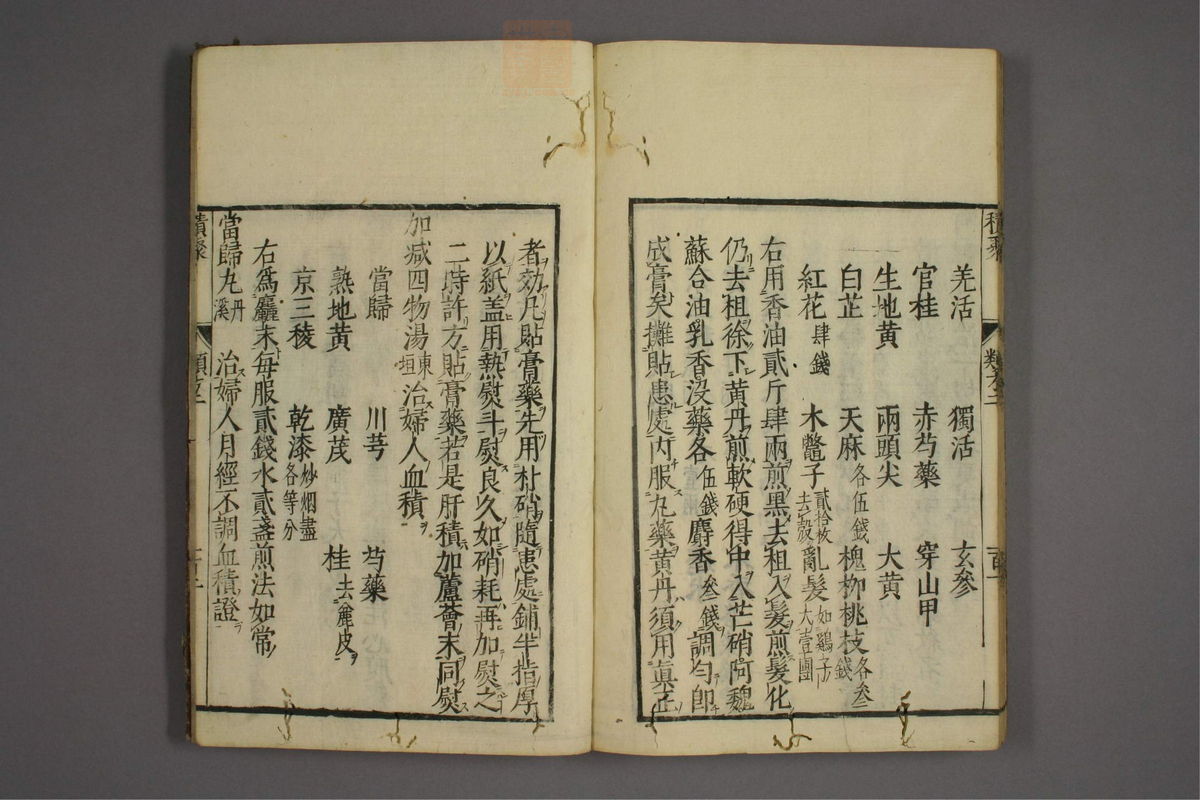 積聚
羌活 獨活 玄參
官桂 赤芍藥 穿山甲
生地黃 兩頭尖 大黃
白芷 天麻各伍錢 槐柳桃枝各叁錢
紅花肆錢 木鼈子貳拾枚去殼 亂髮如鷄子大壹團
右用香油貳斤肆兩煎黑去柤入髮煎髮化
仍去柤徐下黃丹煎軟硬得中入芒硝阿魏
蘇合油乳香沒藥各伍錢麝香叁錢調勻卽
成膏矣攤貼患處內服丸藥黃丹須用眞正
者効凡貼膏藥先用朴硝隨患處鋪半指厚
以紙盖用熱熨斗熨良久如硝耗再加熨之
二時許方貼膏藥若是肝積加蘆薈末同熨
加减四物湯東垣 治婦人血積
當歸 川芎 芍藥
熟地黃 廣茂 桂去麄皮
京三稜 乾漆炒烟盡各等分
右爲麤末每服貳錢水貳盞煎法如常
當歸丸丹溪 治婦人月經不調血積證
積聚